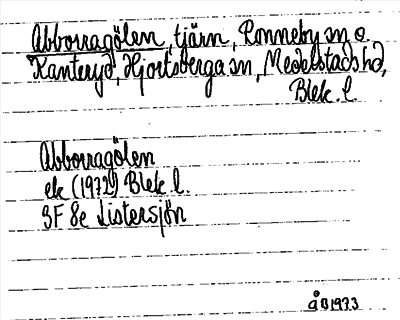 Abborragölen, tjärn, Ronneby sn o.
Kanteryd, Hjortsberga sn, Medelstads hd,
Blek. l.
Abborragölen
ek (1972) Blek l.
3F 8e Listersjön
åB 1973